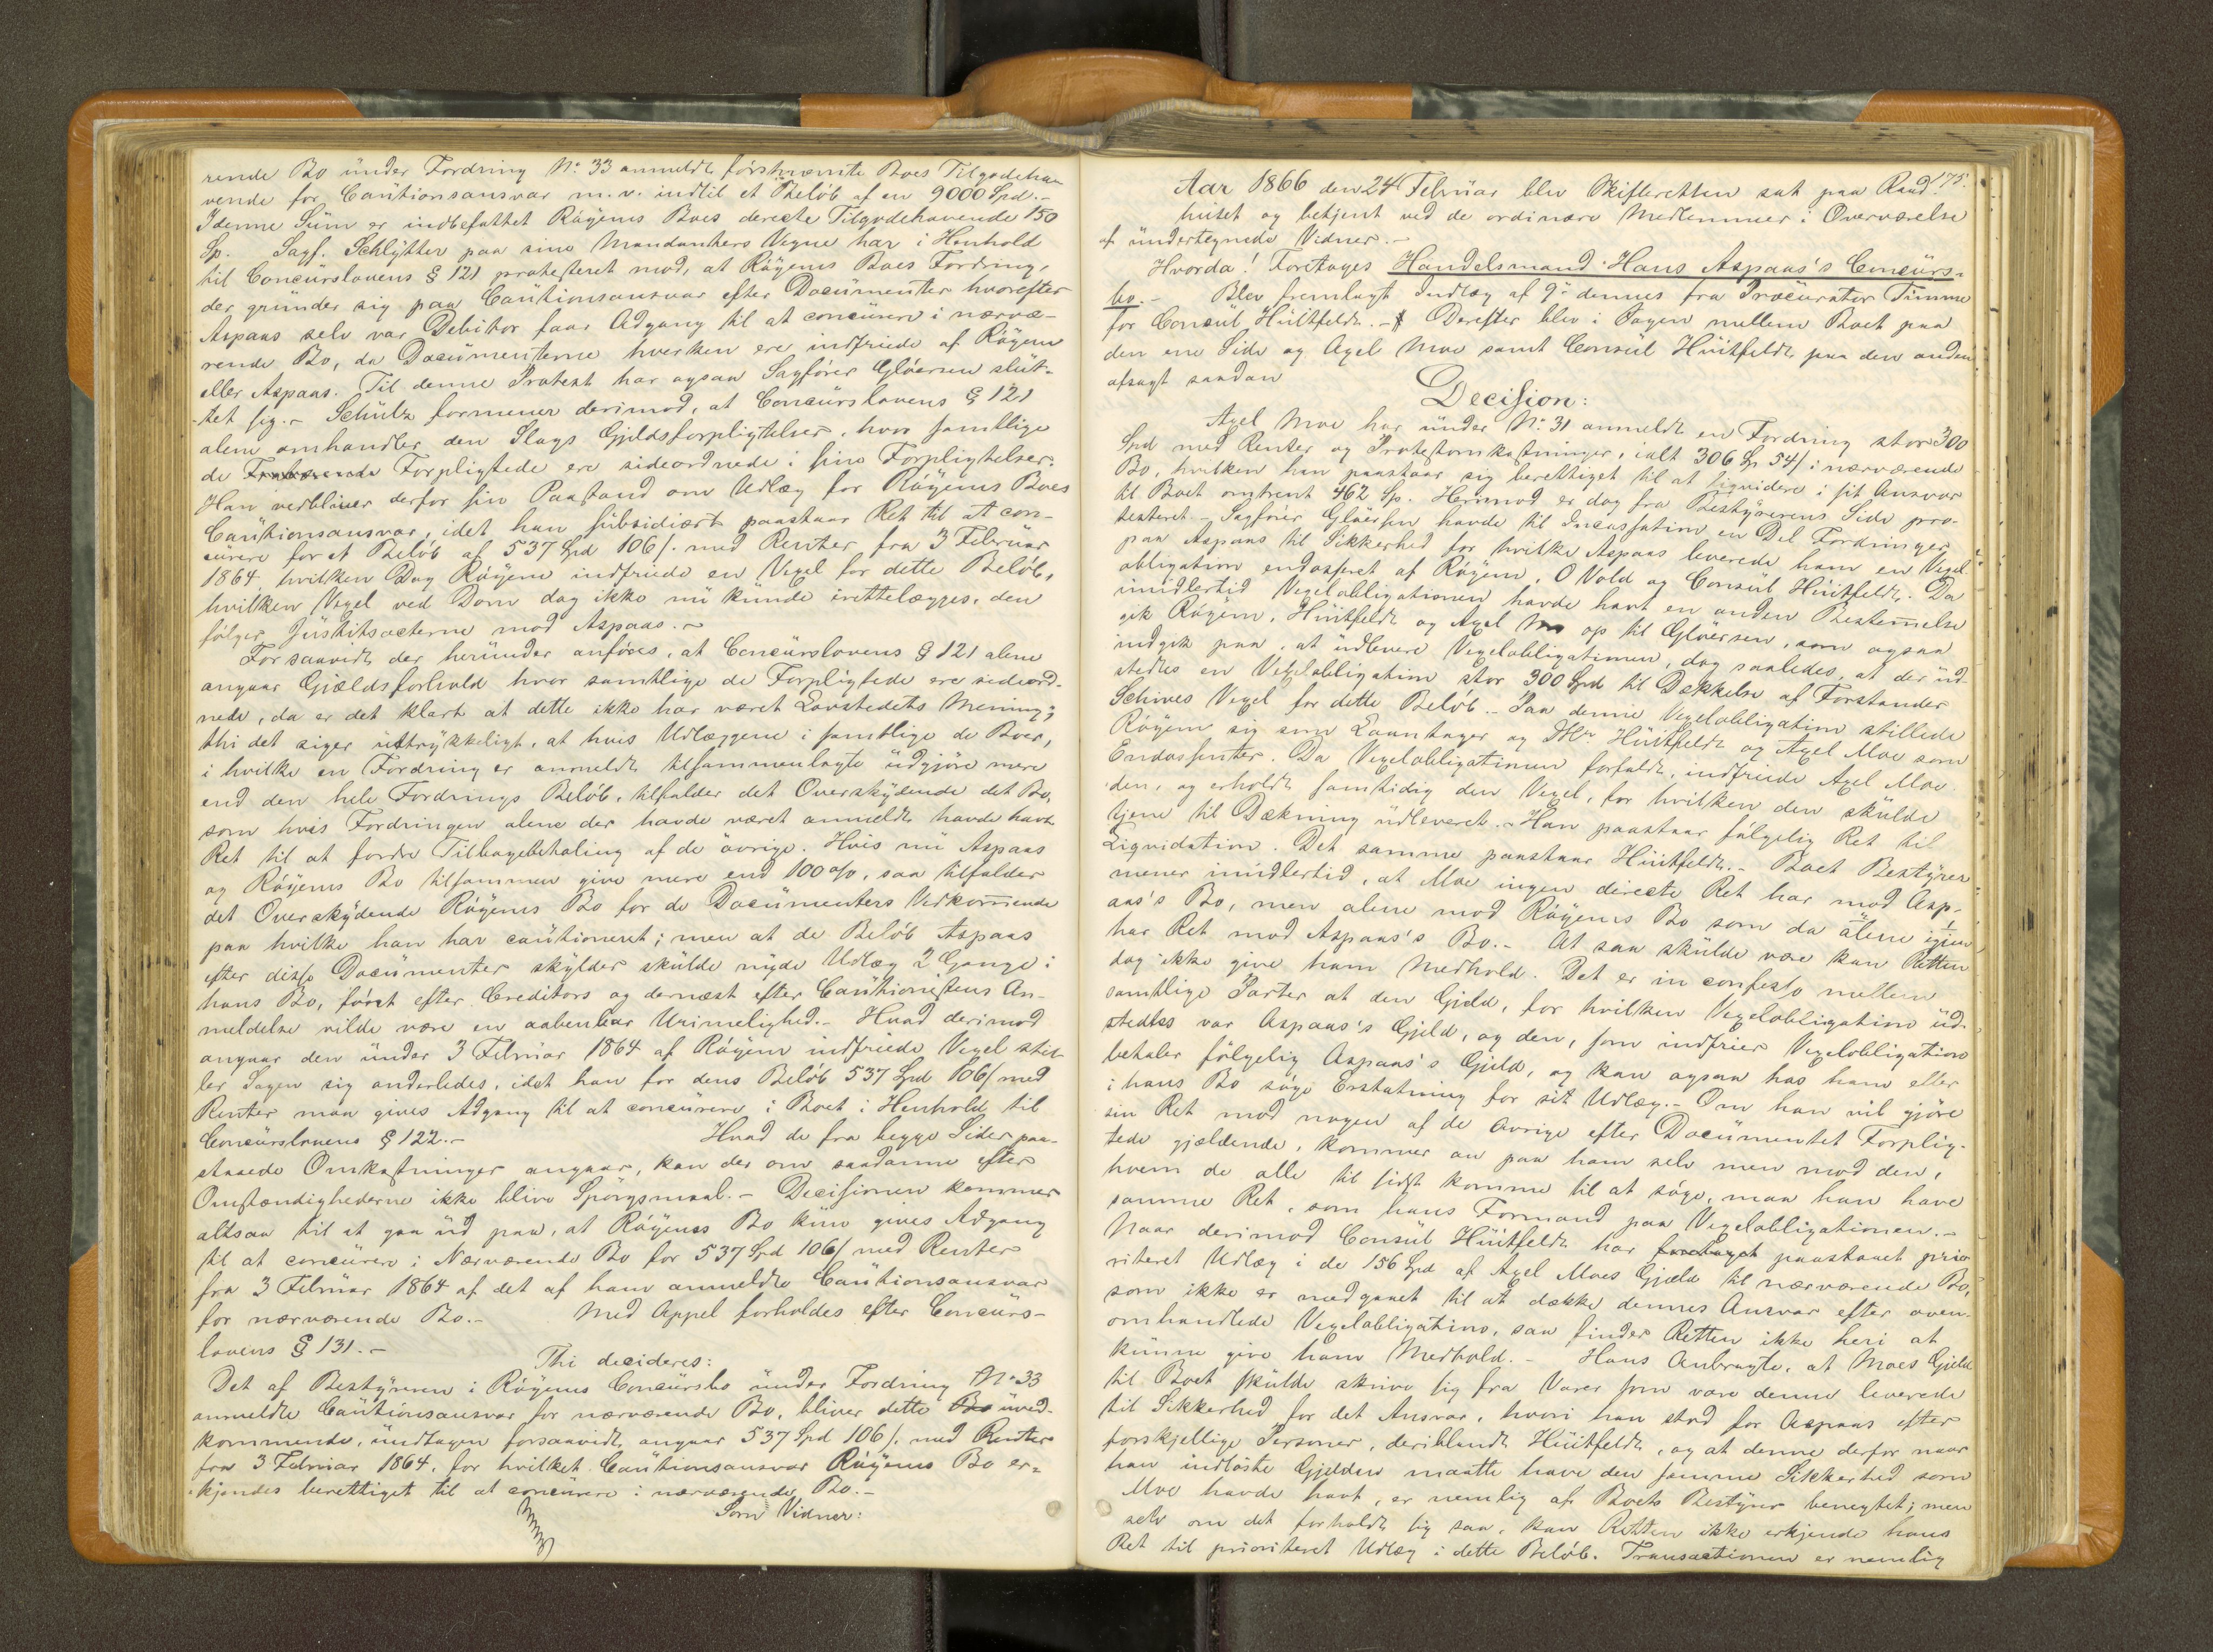 rende Bo under Fordring No 33 anmeldt förstnævnte Boes Tilgodeha-
vende for Cautionsansvar m.v. indtil et Beløb af en 9000 Spd.-
I denne Sum er indbefattet Röyems Boes directe Tilgodehavende 150
Sp. Sagf. Schlytter paa sine Mandanters Vegne har i Henhold
til Concurslovens § 121 protesteret mod, at Röyems Boes Fordring,
der grunder sig paa Cautionsansvar efter Documenter hvorefter
Aspaas selv var Debitor faar Adgang til at concurere i nærvæ-
rende Bo, da Documenterne hverken ere indfriede af Röyem
eller Aspaas. Til denne Protest har ogsaa Sagförer Glöersen slut-
tet sig.- Schulz formener derimod, at Concurslovens § 121
alene omhandler den Slags Gjeldsforpligtelser, hvor samtlige
de Forpligtede ere sideordnede i sine Forpligtelser.
Han vedbliver derfor sin Paastand om Udlæg for Röyems Boes
Cautionsansvar, idet han subsidiært paastaar Ret til at con-
curere for et Beløb af 537 Spd 106 /. med Renter fra 3 Februar
1864 hvilken Dag Röyem indfriede en Vexel for dette Beløb,
hvilken Vexel ved Dom dog ikke nu kunde irettelægges, den
følger Justitsacterne mod Aspaas.-
Forsaavidt der herunder anföres, at Concurslovens § 121 alene
angaar Gjældsforhold hvor samtlige de Forpligtede ere sideord-
nede, da er det klart at dette ikke har været Lovstedets Mening;
thi det siger udtrykkeligt, at hvis Udlæggene i samtlige de Boer,
i hvilke en Fordring er anmeldt tilsammenlagte udgjøre mere
end den hele Fordrings Beløb, tilfalder det Overskydende det Bo,
som hvis Fordringen alene der havde været anmeldt havde havt
Ret til at fordre Tilbagebetaling af de övrige. Hvis nu Aspaas
og Röyems Bo tilsammen give mere end 100 o/o, saa tilfalder
det Overskydende Röyems Bo for de Documenters Vedkommende
paa hvilke han har cautioneret; men at de Beløb Aspaas
efter disse Documenter skylder skulde nyde Udlæg 2 Gange i
hans Bo, først efter Creditors og dernæst efter Cautionistens An-
meldelse vilde være en aabenbar Urimelighed.- Hvad derimod
angaar den under 3 Februar 1864 af Röyem indfriede Vexel stil-
ler Sagen sig anderledes, idet han for dens Beløb 537 Spd 106/ med
Renter maa gives Adgang til at concurere i Boet i Henhold til
Concurslovens § 122.- Hvad de fra begge Sider paa-
staaede Omkostninger angaar, kan der om saadanne efter
Omstændighederne ikke blive Spörgsmaal.- Decisionen kommer
altsaa til at gaa ud paa, at Röyems Bo kun gives Adgang
til at concurere i Nærværende Bo for 537 Spd 106/ med Renter
fra 3 Februar 1864 af det af ham anmeldte Cautionsansvar
for nærværende Bo.- Med Appel forholdes efter Concurs-
lovens § 131.-
Thi decideres:
Det af Bestyreren i Röyems Concursbo under Fordring No 33
anmeldte Cautionsansvar for nærværende Bo, bliver dette Bo uved-
kommende, undtagen forsaavidt angaar 537 Spd 106 /. med Renter
fra 3 Februar 1864, for hvilket Cautionsansvar Röyems Bo er-
kjendes berettiget til at concurere i nærværende Bo.-
Som Vidner:
175.
Aar 1866 den 24 Februar blev Skifteretten sat paa Raad-
huset og betjent ved de ordinære Medlemmer i Overværelse
af undertegnede Vidner.-
Hvorda! Foretages Handelsmand Hans Aspaas's Concurs-
bo.- Blev fremlagt Indlæg af 9de dennes fra Procurator Timme
for Consul Huitfeldt.- Derefter blev i Sagen mellem Boet paa
den ene Side og Axel Moe samt Consul Huitfeldt paa den anden
afsagt saadan
Decision:
Axel Moe har under No 31 anmeldt en Fordring stor 300
Spd med Renter og Protestomkostninger, ialt 306 Sp 54/ i nærværende
Bo, hvilken han paastaar sig berettiget til at liqvidere i sit Ansvar
til Boet omtrent 462 Sp. Herimod er dog fra Bestyrerens Side pro-
testeret - Sagförer Glöersen havde til Incassation en Del Fordringer
paa Aspaas til Sikkerhed for hvilke Aspaas leverede ham en Vexel-
obligation endosseret af Röyem, O Vold og Consul Huitfeldt. Da
imidlertid Vexelobligationen havde havt en anden Bestemelse
gik Röyem, Huitfeldt og Axel Moe op til Glöersen, som ogsaa
indgik paa, at udlevere Vexelobligationen, dog saaledes, at der ud-
stedtes en Vexelobligation stor 300 Spd til Dækkelse af Forstander
Schives Vexel for dette Beløb.- Paa denne Vexelobligation stillede
Röyem sig som Laantager og Hr Huitfeldt og Axel Moe som
Endossenter. Da Vexelobligationen forfaldt, indfriede Axel Moe
den, og erholdt samtidig den Vexel, for hvilken den skulde
tjene til Dækning udleveret.- Han paastaar følgelig Ret til
Liqvidation. Det samme paastaar Huitfeldt.- Boet Bestyrer
mener imidlertid, at Moe ingen directe Ret har mod Asp-
aas's Bo, men alene mod Röyems Bo som da alene igjen
har Ret mod Aspaas's Bo.- At saa skulde være kan Retten
dog ikke give ham Medhold. Det er in confesso mellem
samtlige Parter at den Gjeld, for hvilken Vexelobligation ud-
stedtes var Aspaas's Gjeld, og den, som indfrier Vexelobligation
betaler følgelig Aspaas's Gjeld, og kan ogsaa hos ham eller
i hans Bo söge Erstatning for sit Udlæg.- Om han vil gjöre
sin Ret mod nogen af de Øvrige efter Documentet Forplig-
tede gjældende, kommer an paa ham selv men mod den,
hvem de alle til sidst komme til at söge, maa han have
samme Ret, som hans Formand paa Vexelobligationen.-
Naar derimod Consul Huitfeldt har foretaget paastaaet prio-
riteret Udlæg i de 156 Spd af Axel Moes Gjæld til nærværende Bo,
som ikke er medgaaet til at dække dennes Ansvar efter oven-
omhandlede Vexelobligation, saa finder Retten ikke heri at
kunne give ham Medhold. - Hans Anbragte, at Moes Gjeld
til Boet skulde skrive sig fra Varer som vare denne leverede
til Sikkerhed for det Ansvar, hvori han stod for Aspaas efter
forskjellige Personer, deriblandt Huitfeldt, og at denne derfor naar
han indlöste Gjelden maatte have den samme Sikkerhed som
Moe havde havt, er nemlig af Boets Bestyrer benegtet; men
selv om det forholdt sig saa, kan Retten ikke erkjende hans
Ret til prioriteret Udlæg i dette Beløb. Transactionen er nemlig